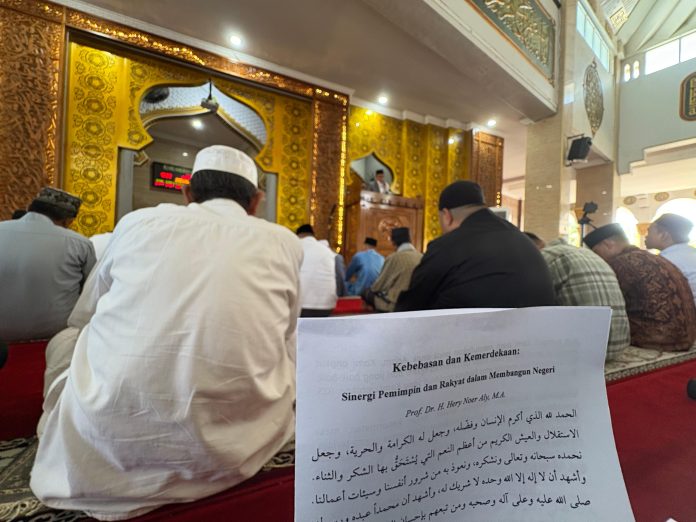 Kebebasan dan Kemerdekaan:
Sinergi Pemimpin dan Rakyat dalam Membangun Negeri
Prof. Dr. H. Hery Noer Aly, M.A.
الحمد لله الذي أكرم الإنسان وفضله، وجعل له الكرامة والحرية، وجعل
الاستقلال والعيش الكريم من أعظم النعم التي يُسْتَحَقُّ بها الشكر والثناء.
نحمده سبحانه وتعالى ونشكره، ونعوذ به من شرور أنفسنا وسيئات أعمالنا.
وأشهد أن لا إله إلا الله وحده لا شريك له، وأشهد أن محمداً عبده
صلى الله عليه وعلى آله وصحبه ومن تبعهم بإحسان